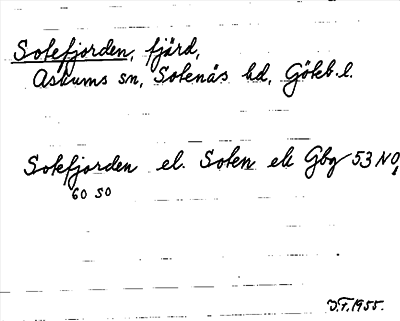 Sotefjorden, fjärd,
Askums sn, Sotenäs hd, Göteb. l.
Sotefjorden el. Soten ek Gbg 53 NO,
60 SO
J.F. 1955.